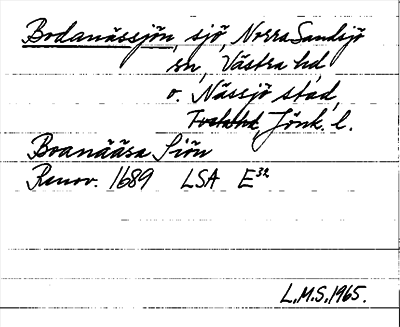 Bodanässjön, sjö, Norra Sandsjö
sn, Västra hd
o. Nässjö stad,
Jönk. l.
Boanääsa Siön
Renov. 1689 LSA E32
L.M.S. 1965.